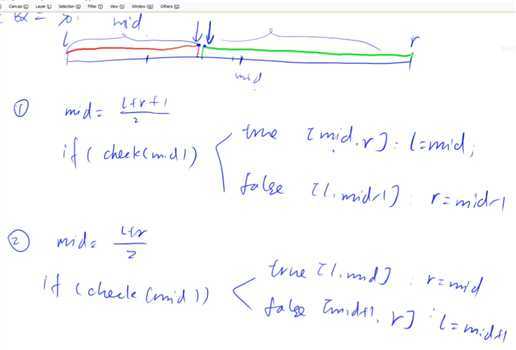 Canvas Layer Selection Filter View Window Others
mid
l r
mid
① mid = l+r+1
2
true [mid, r] : l=mid;
if ( check(mid) )
false [l, mid-1] : r=mid-1
② mid = l+r
2
true [l, mid] : r=mid
if ( check(mid) )
false [mid+1, r] : l=mid+1